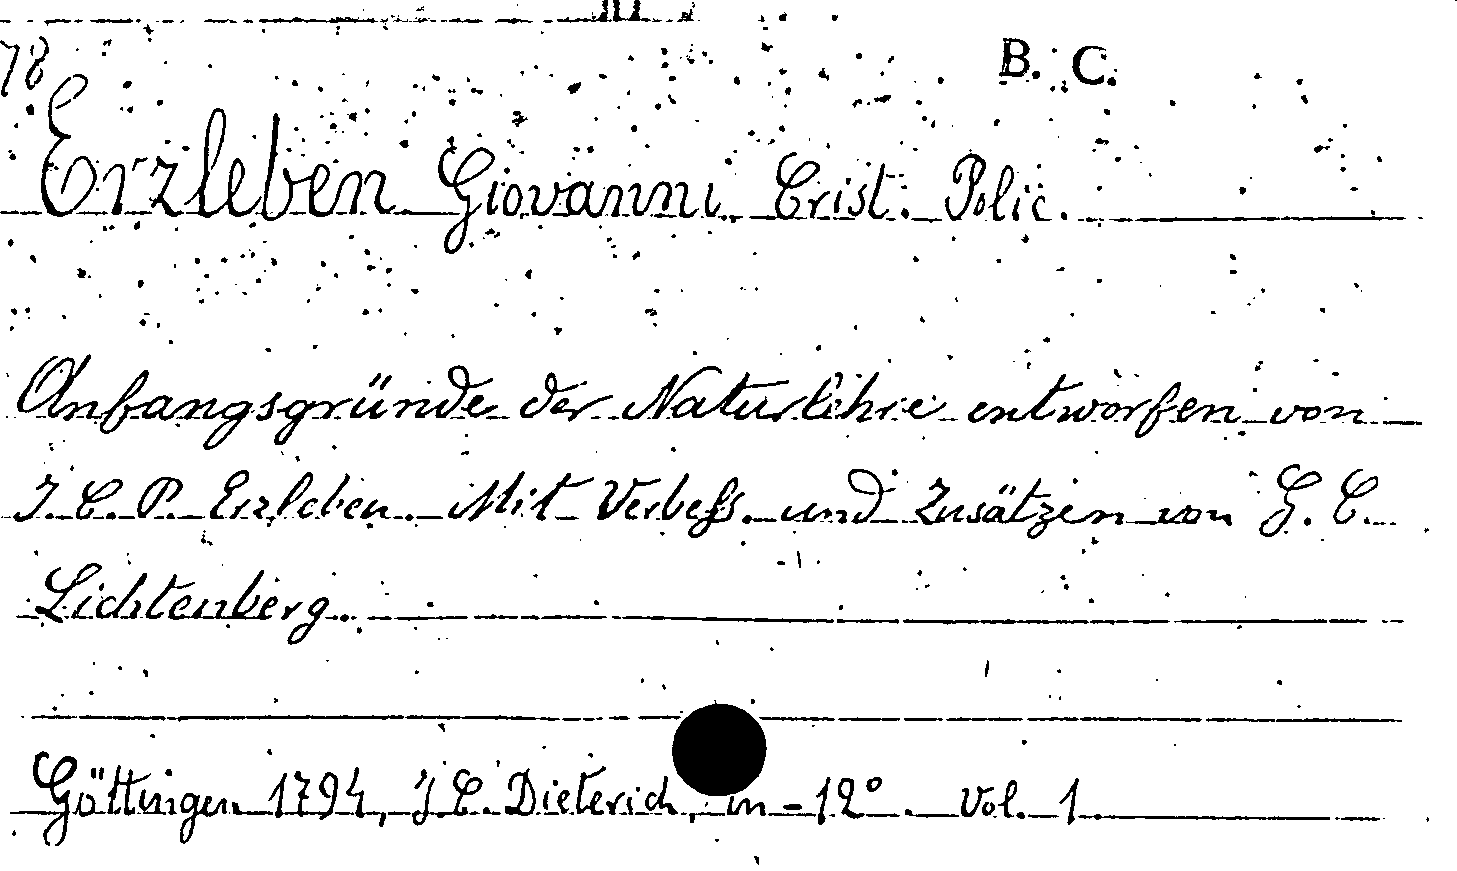 78
B. C.
Erzleben Giovanni Crist. Polic.
Anfangsgründe der Naturlehre entworfen von
J. C. P. Erzleben. Mit Verbeſs. und Zusätzen von G. C.
Lichtenberg.
Göttingen 1794, J. C. Dieterich, in-12°. Vol. 1.